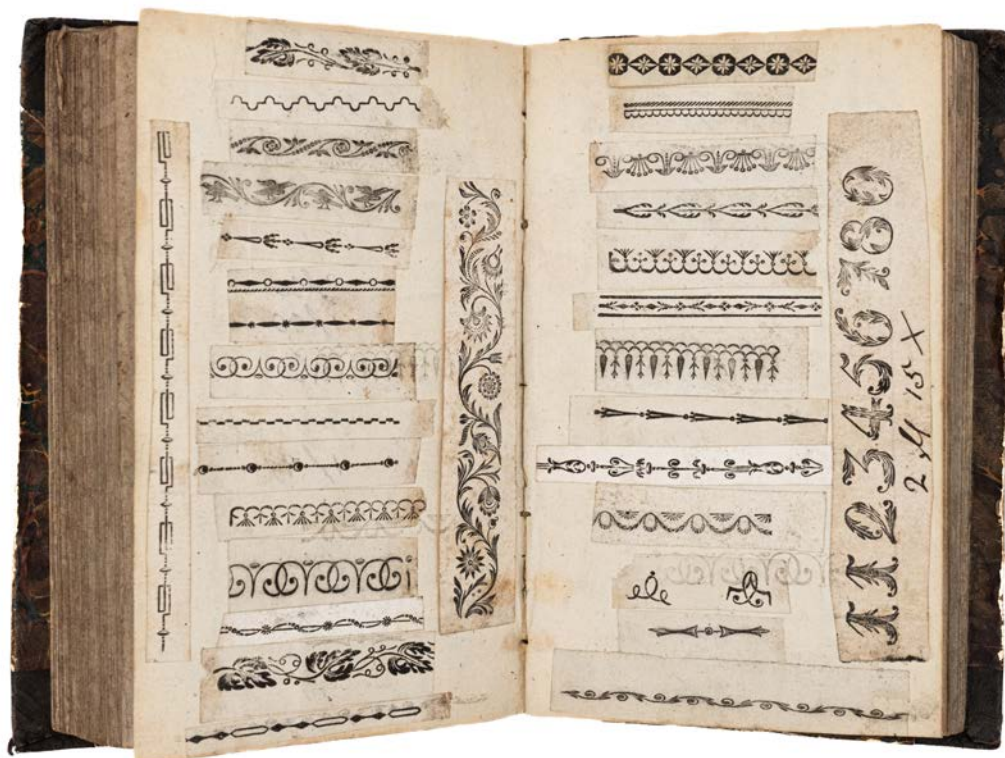 1 1 2 3 4 5 6 7 8 0
2 15 X